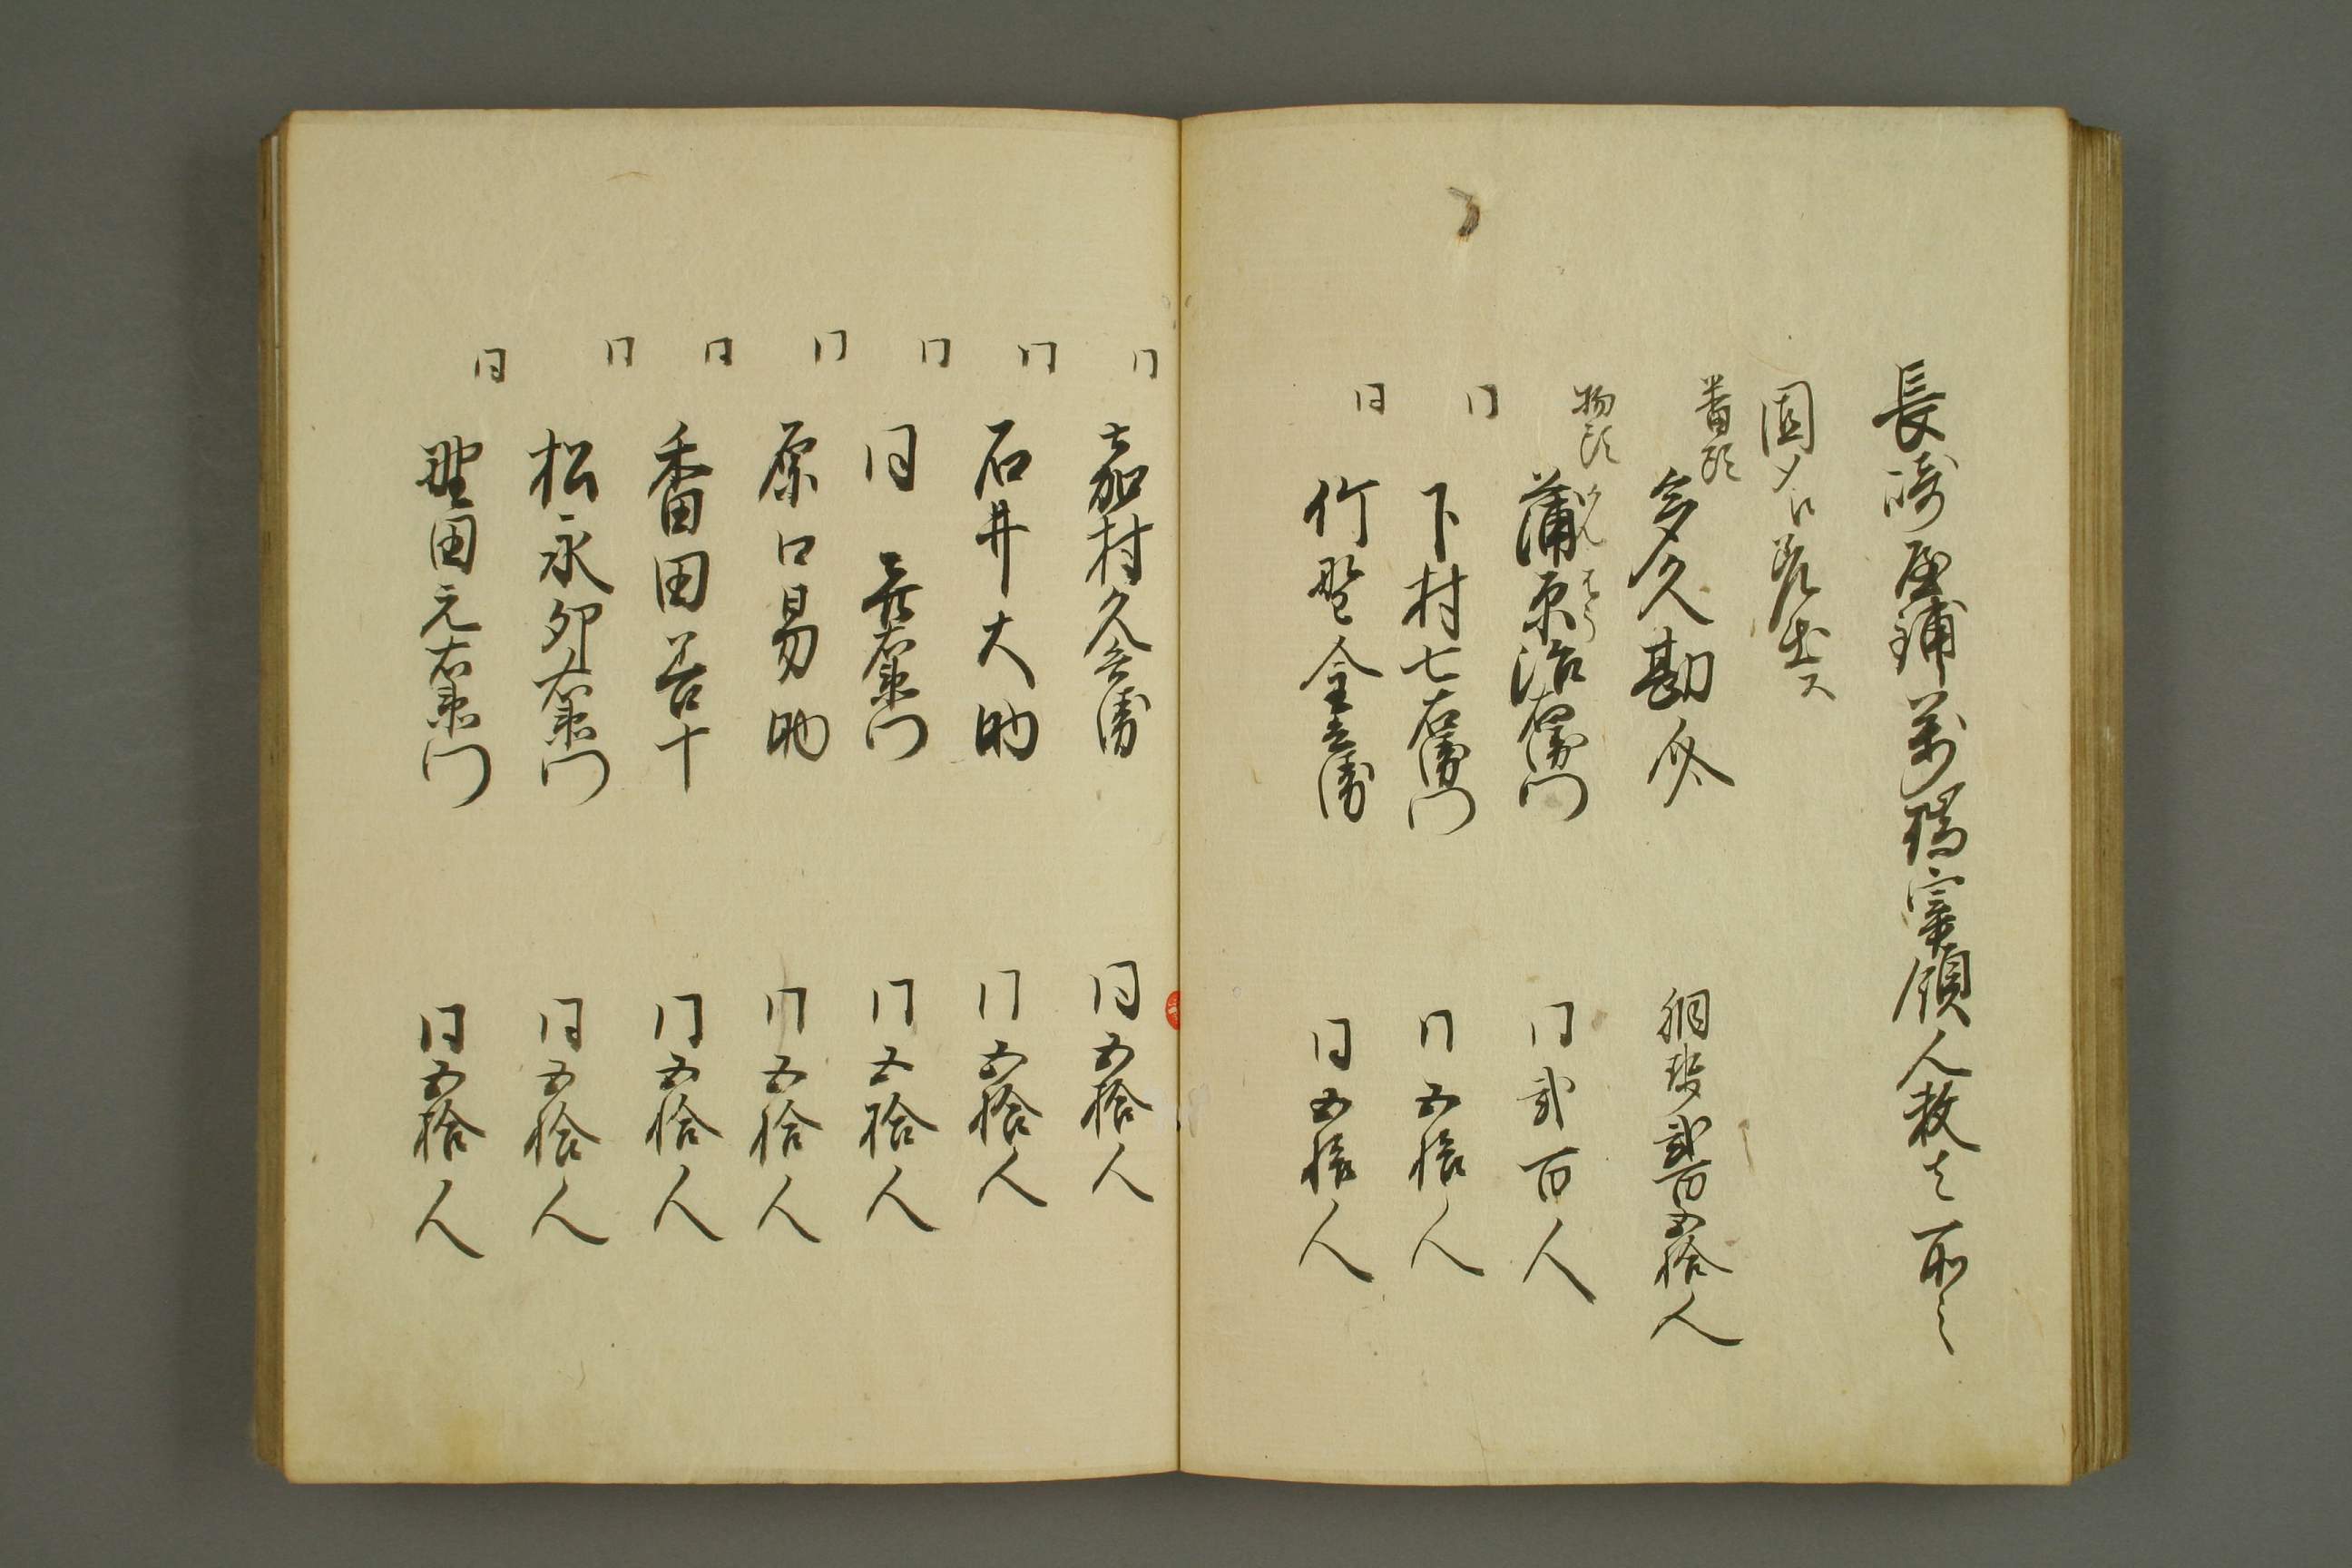 長崎屋鋪并瑞寧領人数之所々
固メニ差出ス
番頭 多久勘介 組段弐百五拾人
物頭 蒲原治右衛門 同弐百人
同 下村七右衛門 同五拾人
同 竹野金兵衛 同五拾人
同 嘉村久兵衛 同五拾人
同 石井大助 同五拾人
同 同 右衛門 同五拾人
同 原口易助 同五拾人
同 香田善十 同五拾人
同 松永卯右衛門 同五拾人
同 野田元右衛門 同五拾人